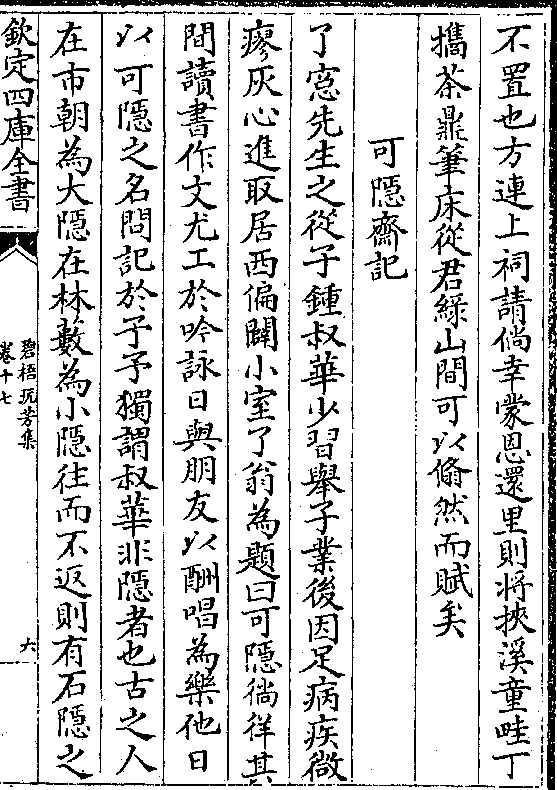 不置也方連上祠請倘幸蒙恩還里則將挾溪童畦丁
攜茶鼎筆床從君緑山間可以翛然而賦矣
可隱齋記
了窓先生之從子鍾叔華少習舉子業後因足病疾微
瘳灰心進取居西偏闢小室了翁為題曰可隱徜徉其
間讀書作文尤工於吟詠日與朋友以酬唱為樂他日
以可隱之名問記於予予獨謂叔華非隱者也古之人
在市朝為大隱在林藪為小隱往而不返則有石隱之
欽定四庫全書
碧梧玩芳集
卷十七
六